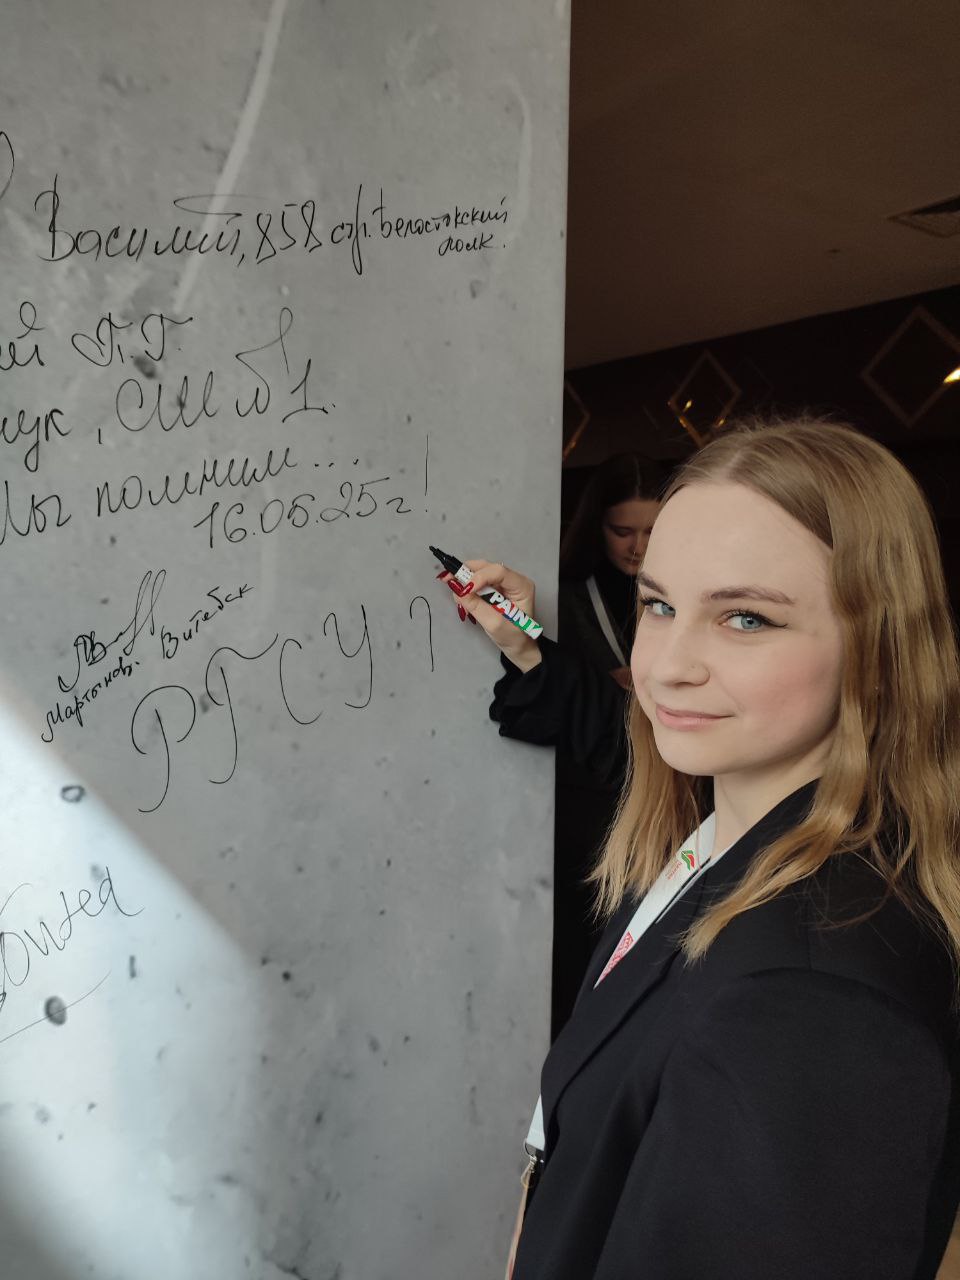 Василий, 858 стр. Белостокский
полк.
ий Г.Г.
чук, СШ №1.
Мы помним...
16.05.25г!
Мартынов. Витебск
РГСУ
PAINT